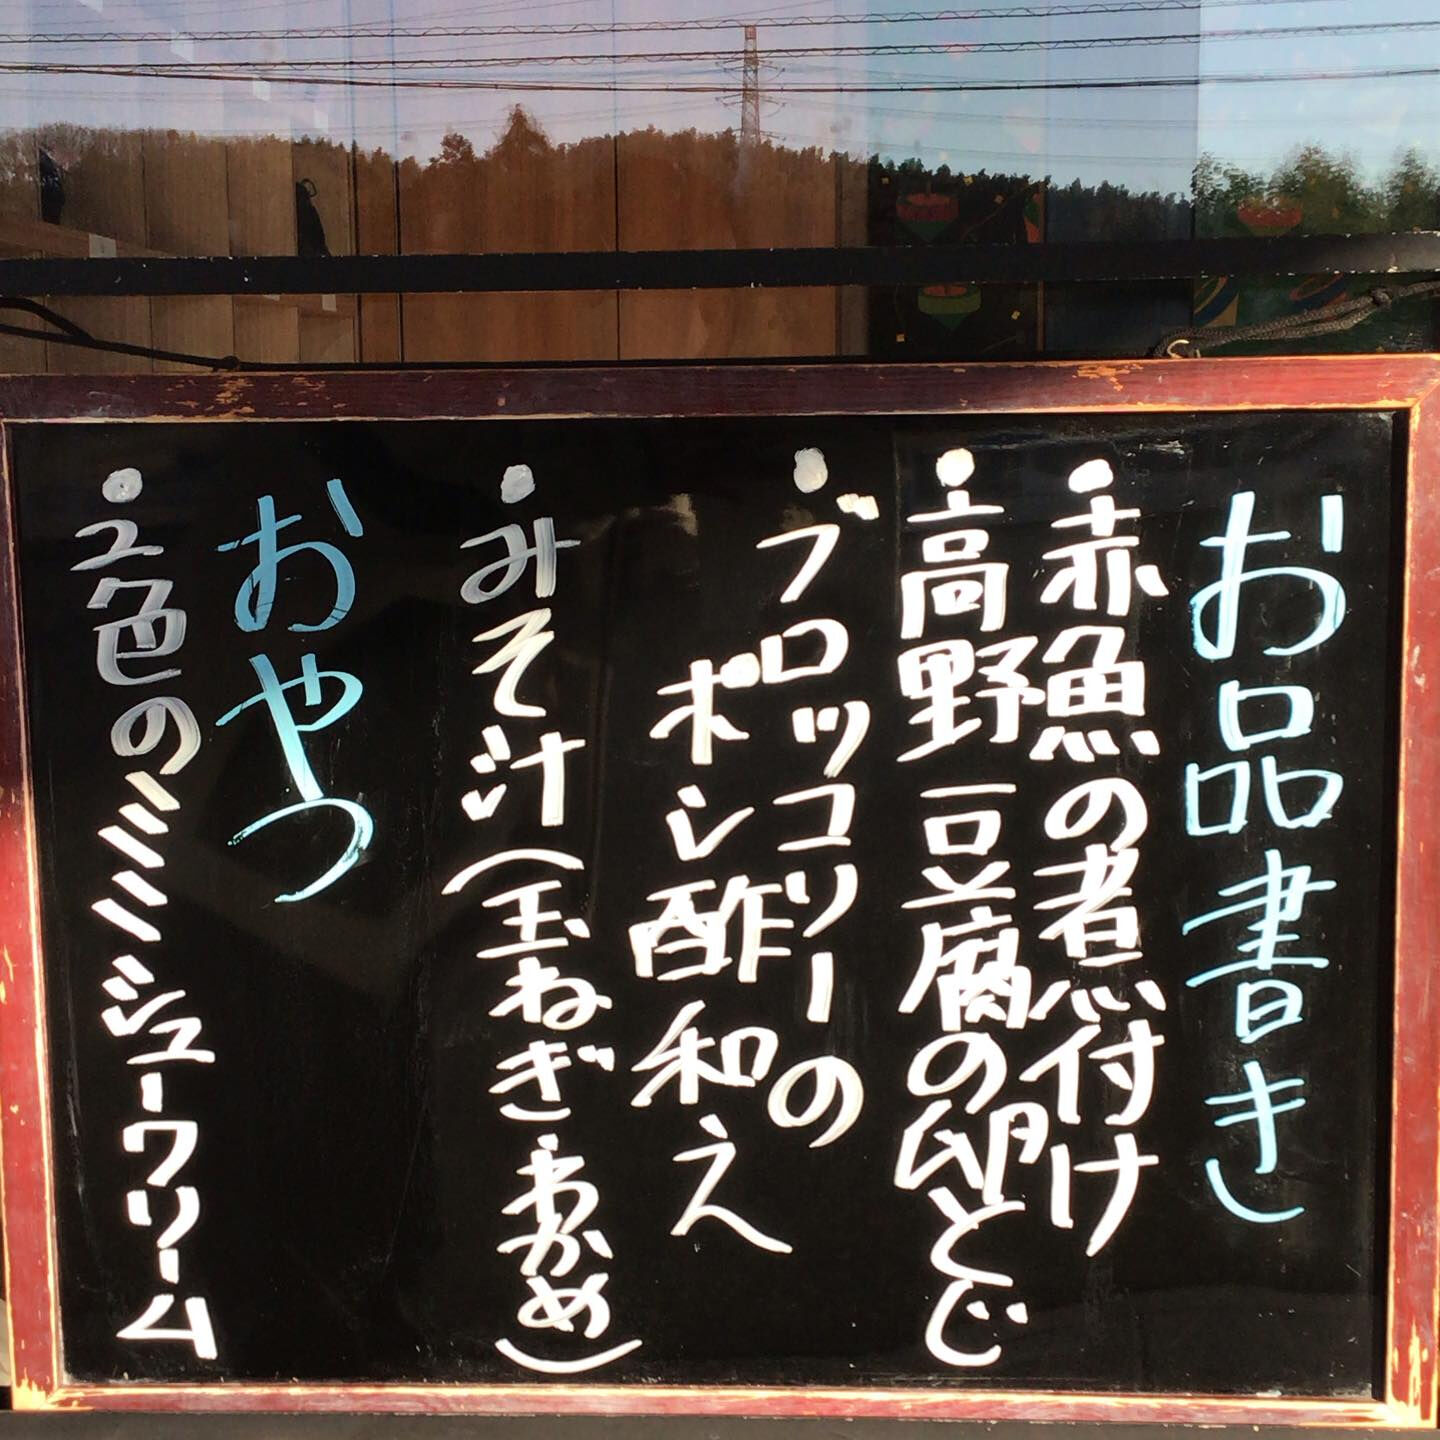 お品書き
・赤魚の煮付け
・高野豆腐の卵とじ
・ブロッコリーの
ポン酢和え
・みそ汁(玉ねぎ・わかめ)
おやつ
・2色のミニシュークリーム